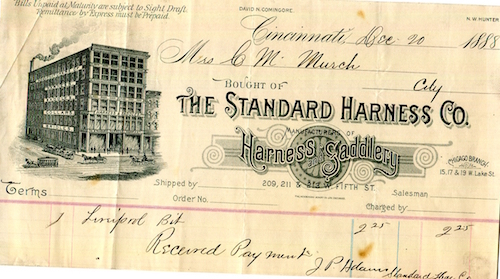 Bills Unpaid at Maturity are subject to Sight Draft.
Remittance by Express must be Prepaid.
DAVID N. COMINGORE.
H.W. HUNTER
Cincinnati, Dec 20 1888
Mrs C M. Murch
City
BOUGHT OF
THE STANDARD HARNESS CO.
MANUFACTURERS OF
Harness and Saddlery
CHICAGO BRANCH
15, 17 & 19 W. Lake St.
Terms
Shipped by 209, 211 & FIFTH ST. Salesman
Order No. Charged by
1 Liverpool Bit 2 25 2 25
Received Payment
J P Adams
Standard Har. Co